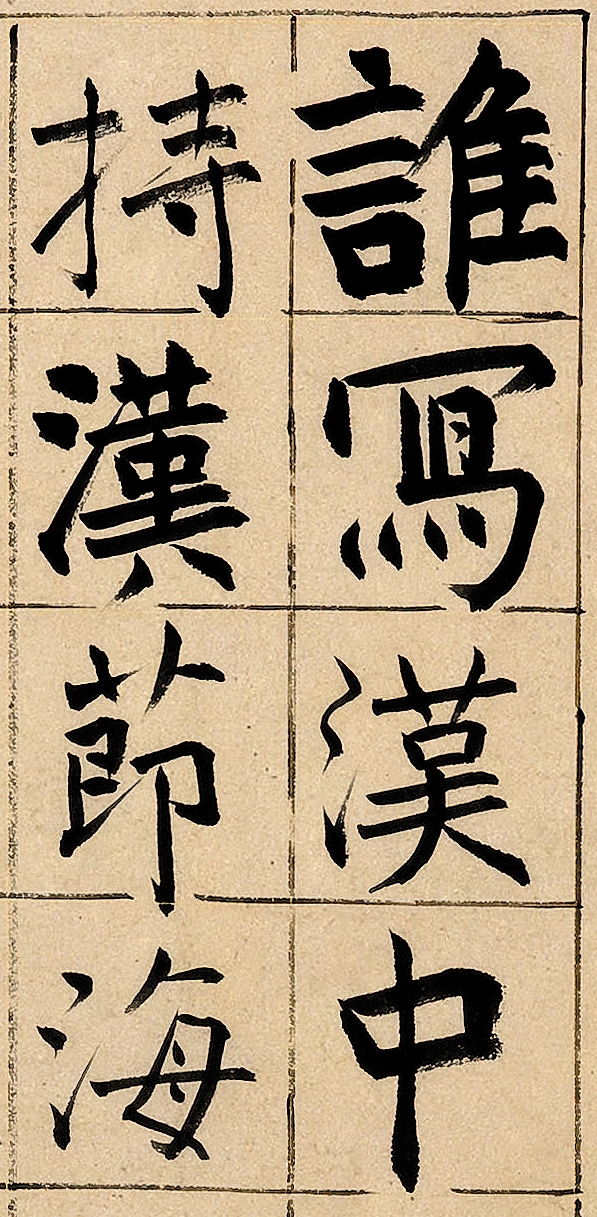 誰寫漢中
持漢節海